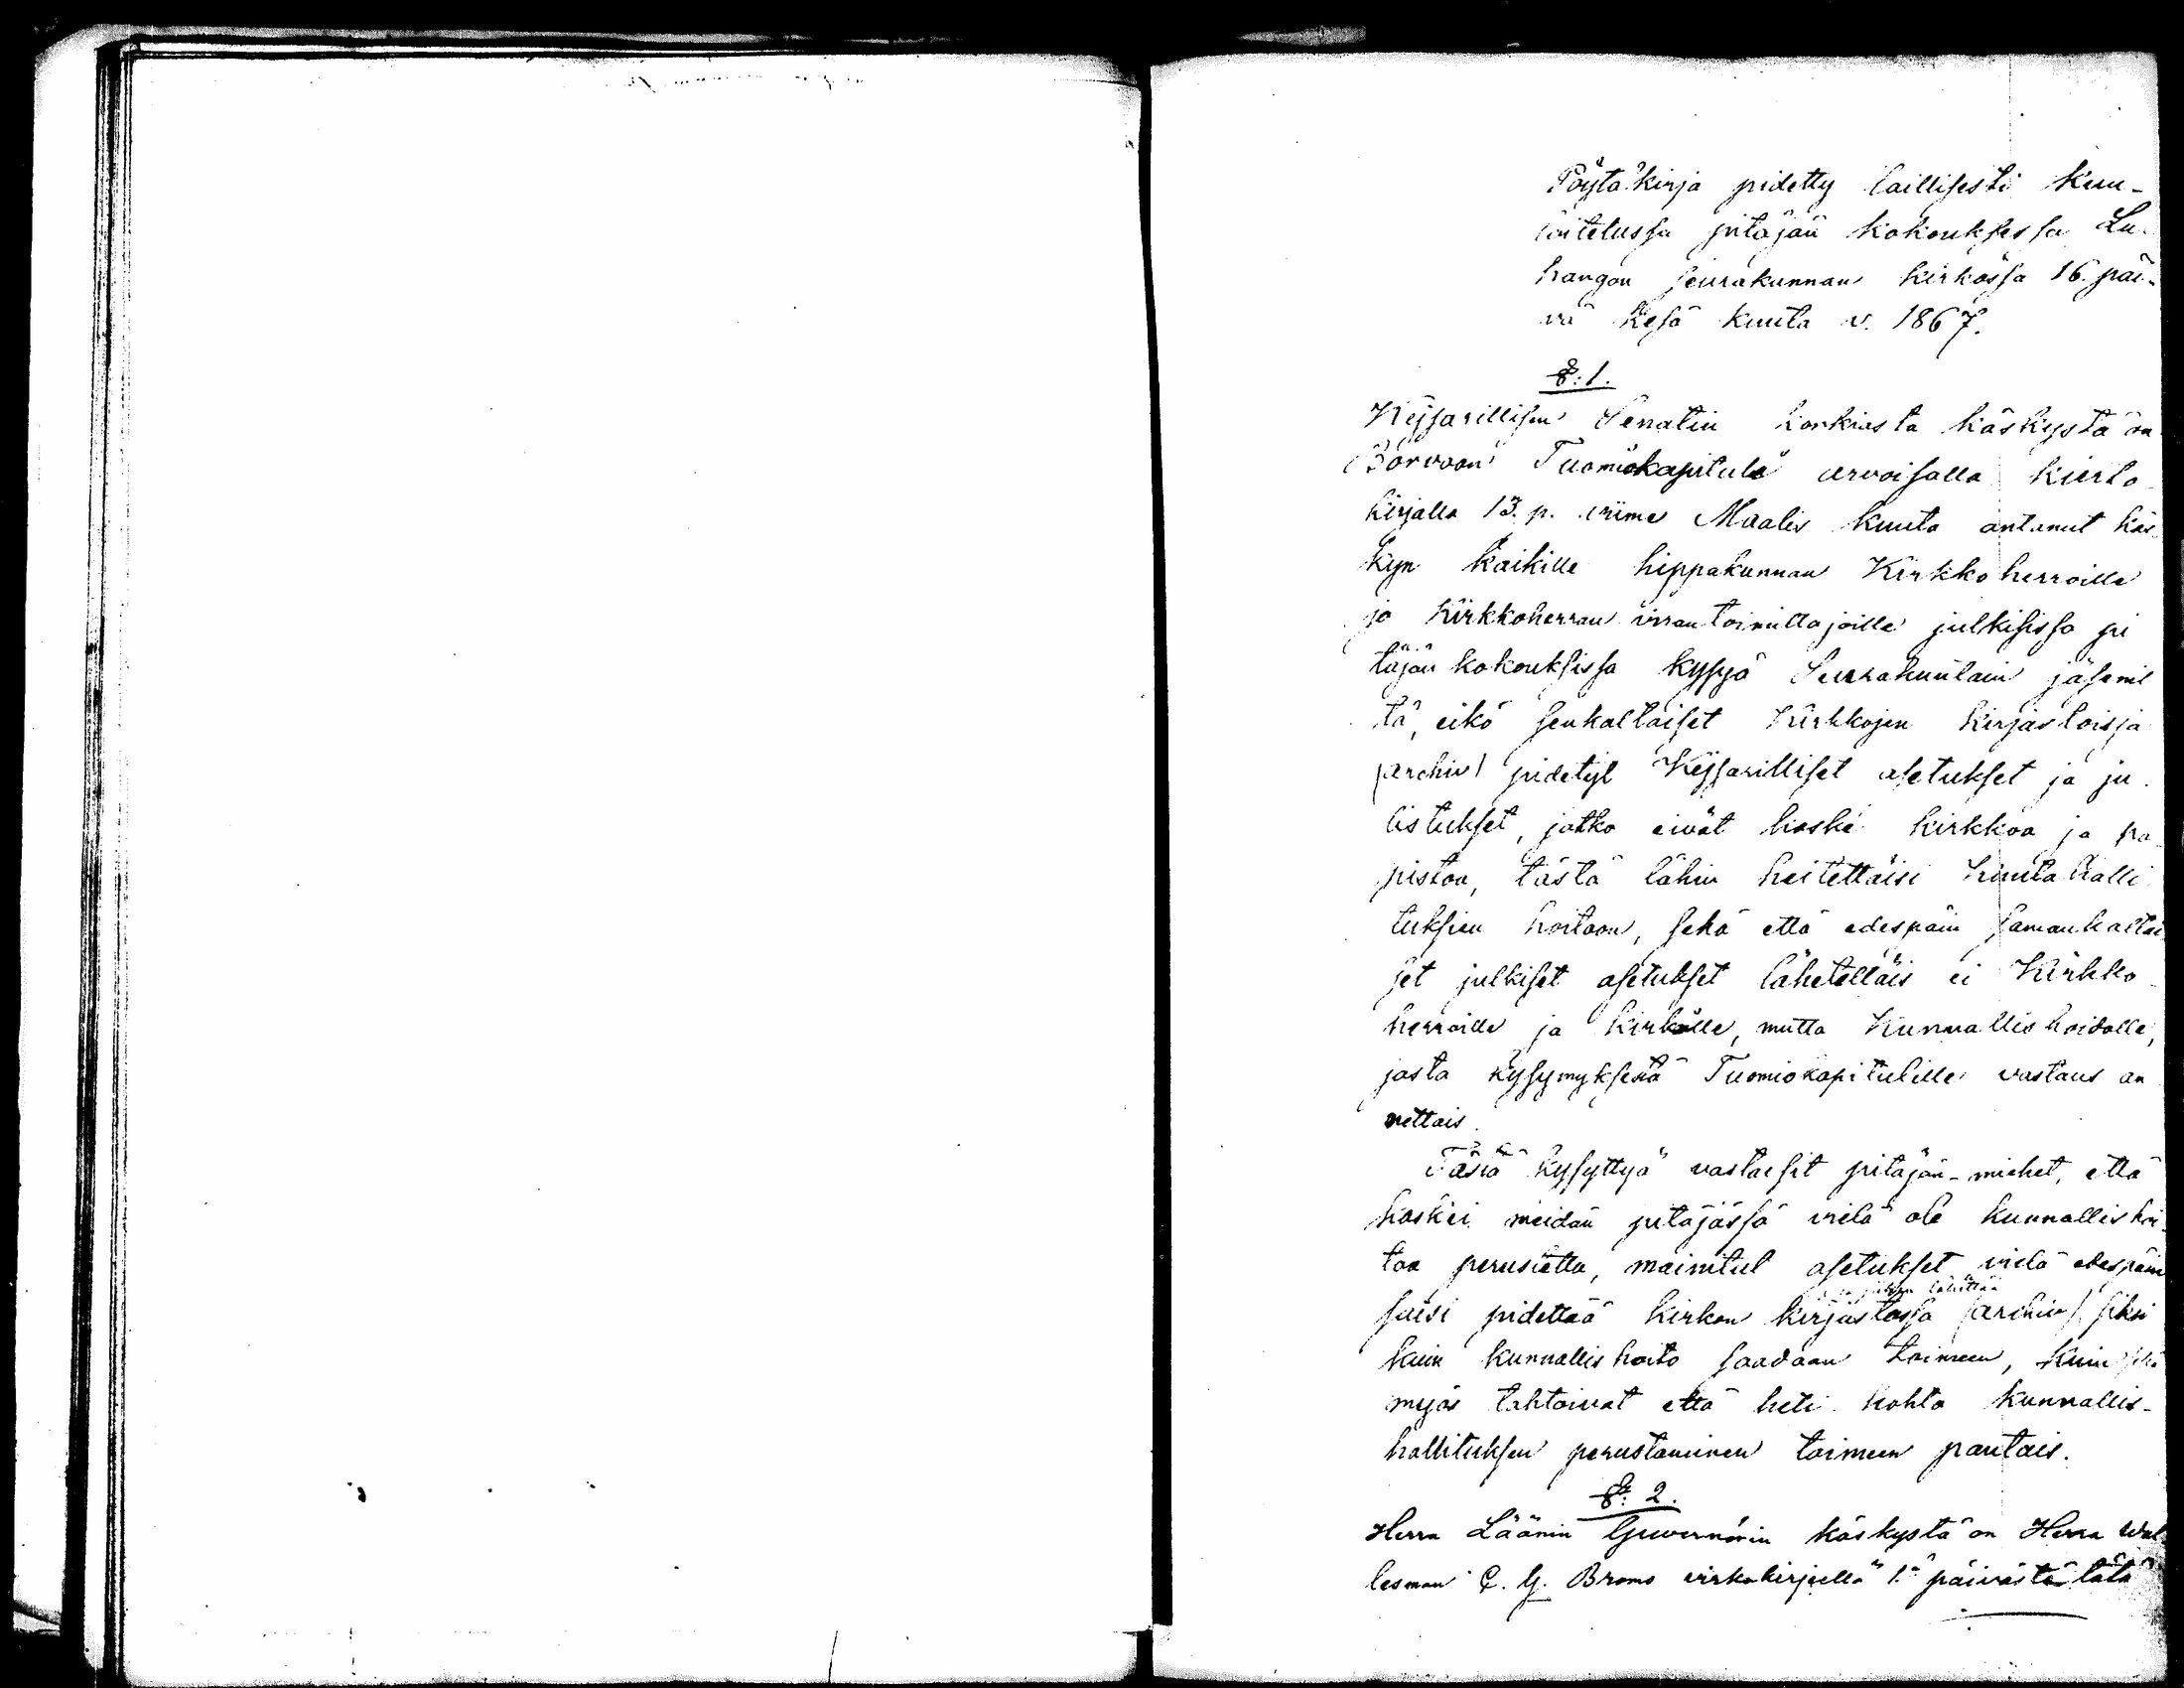 Pöytäkirja pidetty laillisesti kuu-
loitetussa pitäjän kokouksessa Lu-
hangon seurakunnan kirkossa 16. päi-
vä Kesä kuuta v. 1867.
§:1.
Keisarillisen Senatin korkiasta käskystä on
Porvoon Tuomiokapituli arvoisalla kierto
kirjalla 13. p. viime Maalis kuuta antanut käs-
kyn kaikille hippakunnan Kirkkoherroille
ja kirkkoherran virran toimittajoille julkisissa pi
täjän kokouksissa kysyä Seurakuntain jäsenil
tä, eikö senkaltaiset Kirkkojen kirjastoissa
(archiv) pidetyt Keisarilliset asetukset ja ju-
listukset, jotko eivät koske kirkkoa ja pa-
pistoa, tästä lähin heitettäisi kunta halli
tuksien hoitoon, sekä että edespäin samankaltai
set julkiset asetukset lähetettäis ei Kirkko
herroille ja kirkolle, mutta Kunnallis hoidolle,
josta kysymyksestä Tuomiokapitulille vastaus an
nettais.
Tästä kysyttyä vastasit pitäjän-miehet, että
koskei meidän pitäjässä vielä ole kunnallis hoi-
toa perustettu, mainitut asetukset vielä edespäin
lähettää
saisi pidettää kirkon kirjastossa (archiv) siksi
kuin kunnallis hoito saadaan toimeen, kuin
myös tahtoivat että heti kohta kunnallis-
hallituksen perustaminen toimeen pantais.
§: 2.
Herra Läänin Guvernörin käskystä on Herra Wal
lesman C. G. Brams virkakirjalla 1:ä päivästä tätä